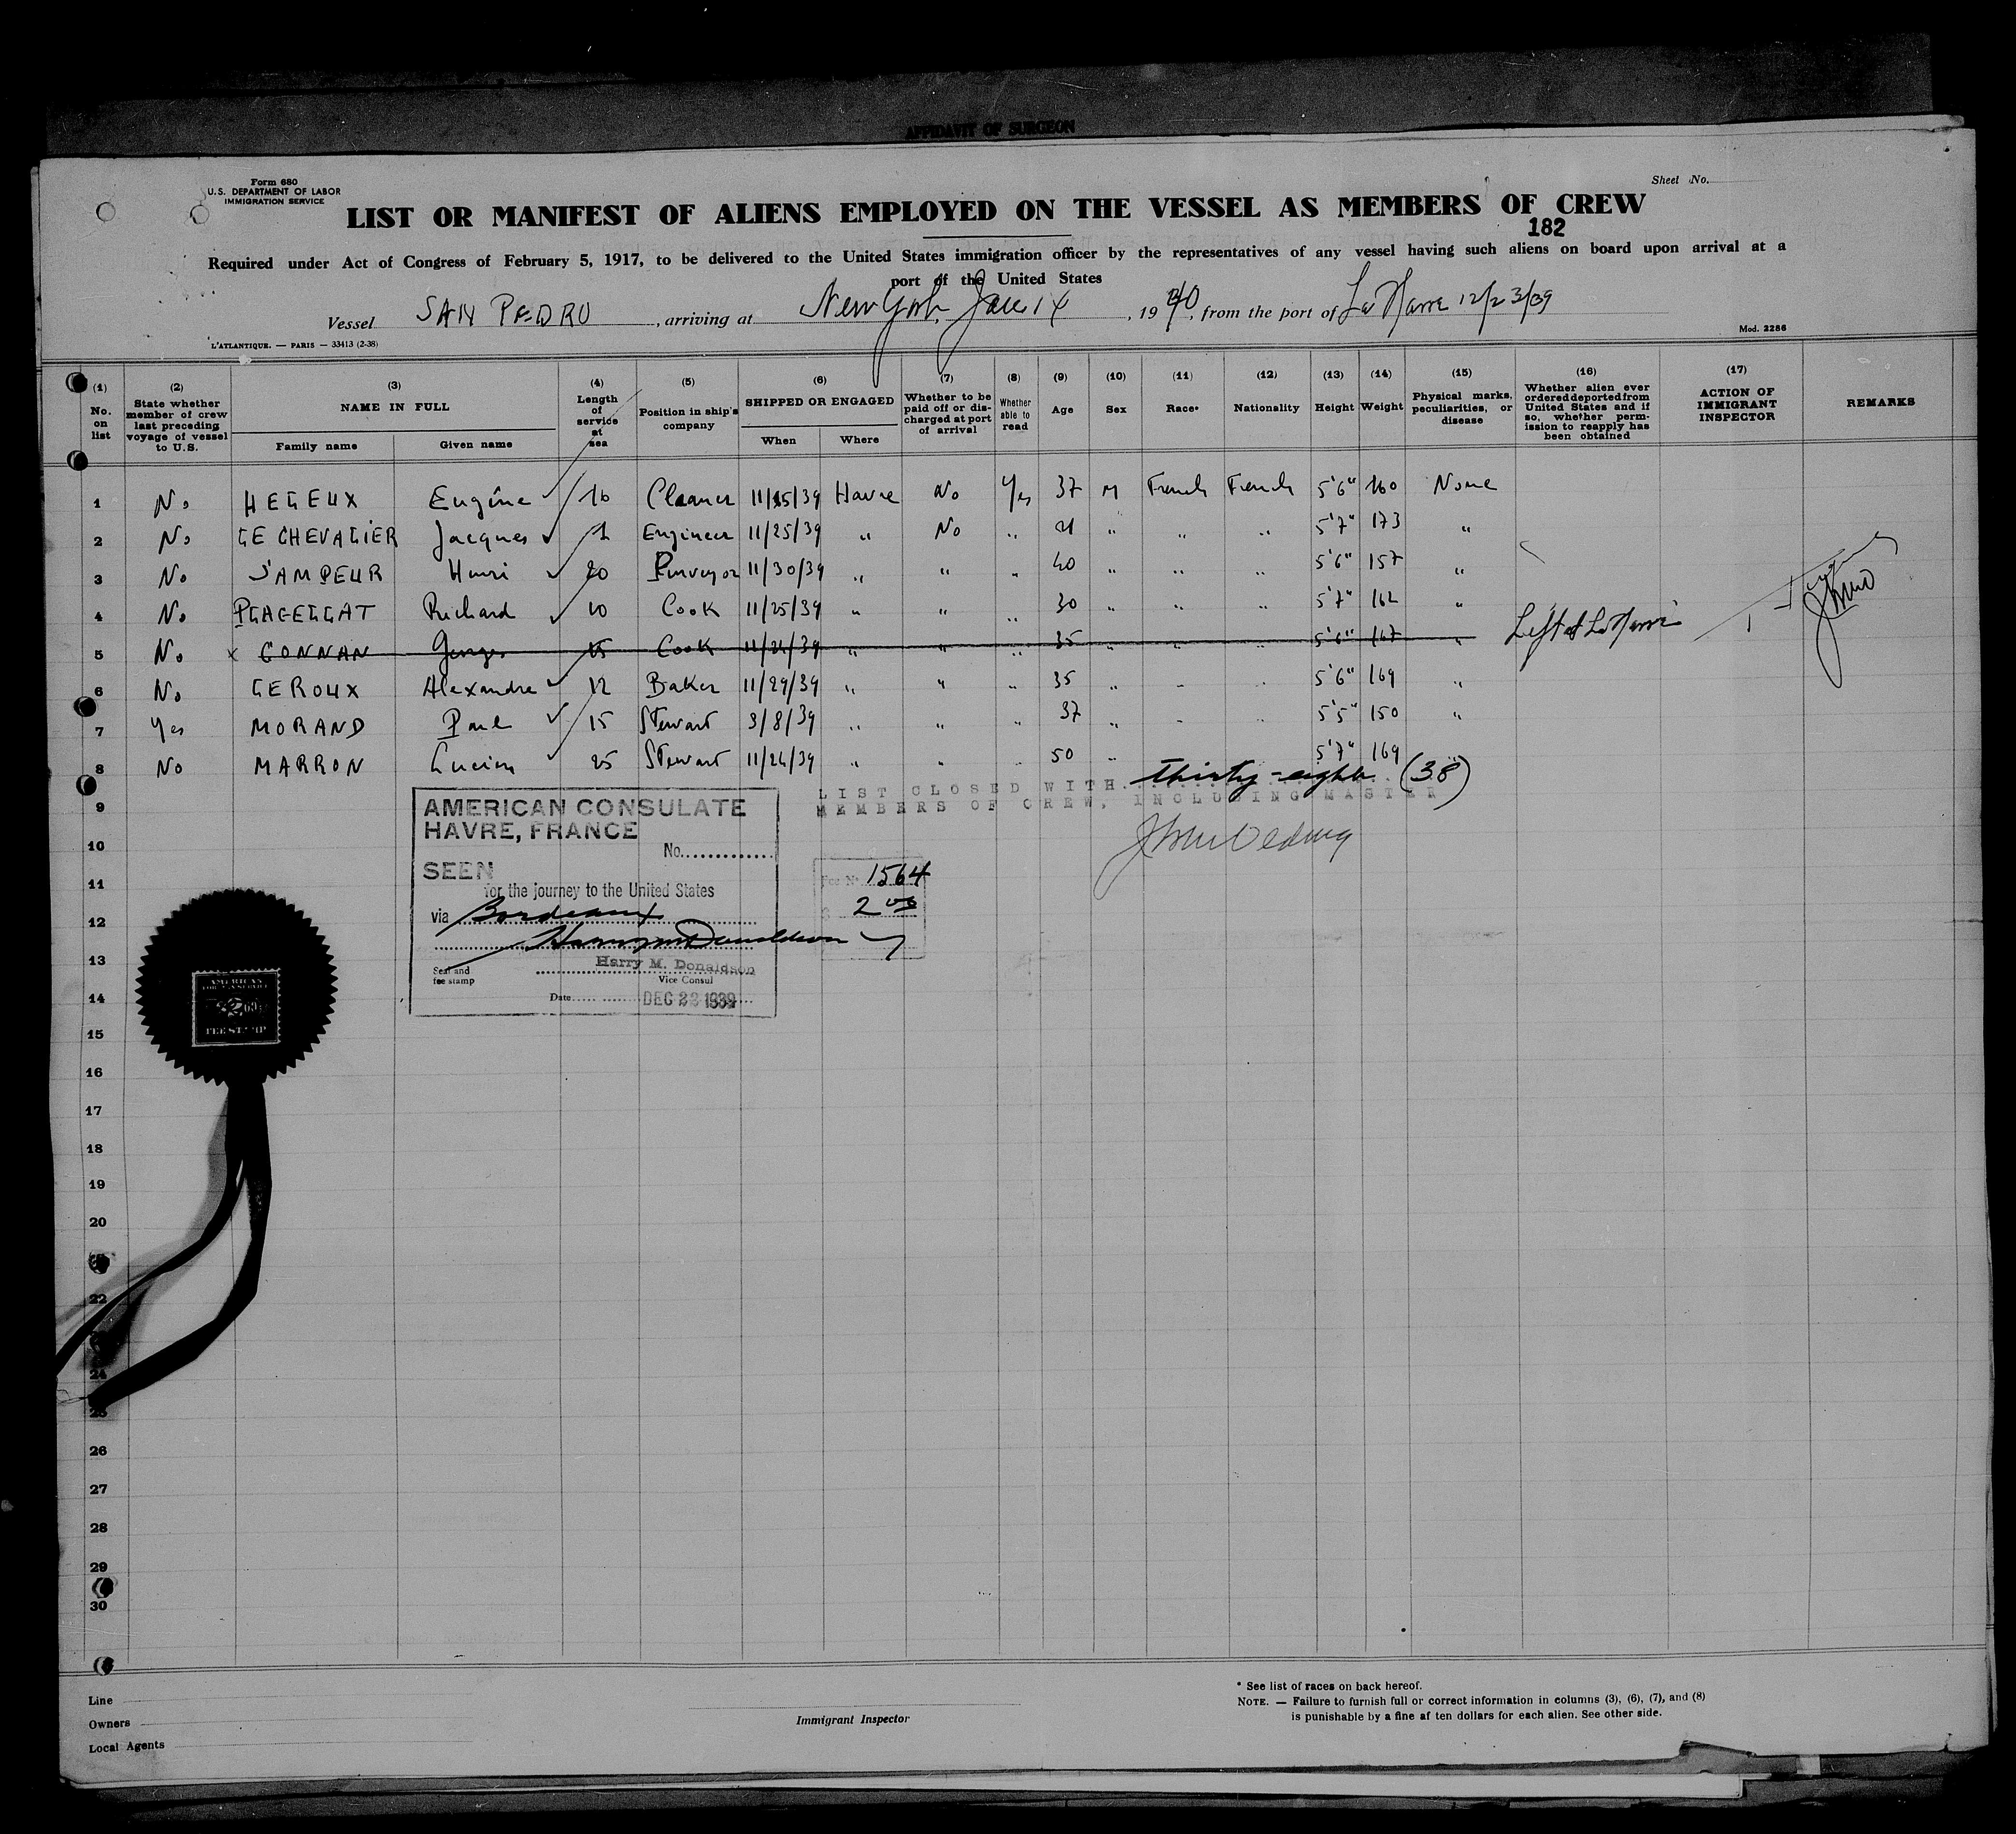 AFFIDAVIT OF SURGEON
Form 680
U.S. DEPARTMENT OF LABOR
IMMIGRATION SERVICE
Sheet No.
LIST OR MANIFEST OF ALIENS EMPLOYED ON THE VESSEL AS MEMBERS OF CREW
182
Required under Act of Congress of February 5, 1917, to be delivered to the United States immigration officer by the representatives of any vessel having such aliens on board upon arrival at a
port of the United States
Vessel SAN PEDRO, arriving at New York, Jan 14, 1940, from the port of Le Havre 12/23/39
L'ATLANTIQUE. — PARIS — 33413 (2-38)
Mod. 2286
(1) No. on list (2) State whether member of crew last preceding voyage of vessel to U.S. (3) NAME IN FULL Family name Given name (4) Length of service at sea (5) Position in ship's company (6) SHIPPED OR ENGAGED When Where (7) Whether to be paid off or discharged at port of arrival (8) Whether able to read (9) Age (10) Sex (11) Race* (12) Nationality (13) Height (14) Weight (15) Physical marks, peculiarities, or disease (16) Whether alien ever ordered deported from United States and if so, whether permission to reapply has been obtained (17) ACTION OF IMMIGRANT INSPECTOR REMARKS
1 No HEGEUX Eugène 16 Cleaner 11/25/39 Havre No Yes 37 M French French 5'6" 160 None
2 No LE CHEVALIER Jacques 1 Engineer 11/25/39 " No " 21 " " " 5'7" 173 "
3 No SAMPEUR Henri 20 Purveyor 11/30/39 " " " 40 " " " 5'6" 157 "
4 No PLAGELLAT Richard 10 Cook 11/25/39 " " " 30 " " " 5'7" 162 "
5 No x CONNAN Georges 15 Cook 11/24/39 " " " 35 " " " 5'6" 167 " Left at Le Havre
6 No LEROUX Alexandre 12 Baker 11/29/39 " " " 35 " " " 5'6" 169 "
7 Yes MORAND Paul 15 Stewart 3/8/39 " " " 37 " " " 5'5" 150 "
8 No MARRON Lucien 25 Stewart 11/24/39 " " " 50 " 5'7" 169 "
LIST CLOSED WITH thirty-eight (38)
MEMBERS OF CREW, INCLUDING MASTER
9
AMERICAN CONSULATE
HAVRE, FRANCE
No.
10
SEEN
for the journey to the United States
11
Fee No 1564
via Bordeaux
12
$ 2 00
Harry M Donaldson
13
Harry M. Donaldson
Seal and fee stamp
Vice Consul
14
Date DEC 22 1939
AMERICAN
FEE STAMP
15
16
17
18
19
20
22
24
25
26
27
28
29
30
Line
Owners
Local Agents
Immigrant Inspector
* See list of races on back hereof.
NOTE. — Failure to furnish full or correct information in columns (3), (6), (7), and (8)
is punishable by a fine af ten dollars for each alien. See other side.